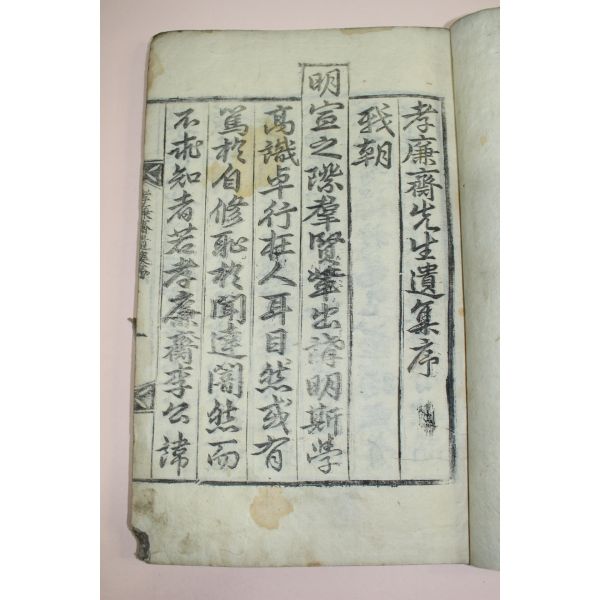 孝廉齋先生遺集序
我朝
明宣之際羣賢輩出講明斯學
高識卓行在人耳目然或有
篤於自修恥於聞達闇然而
不求知者若孝廉齋李公諱